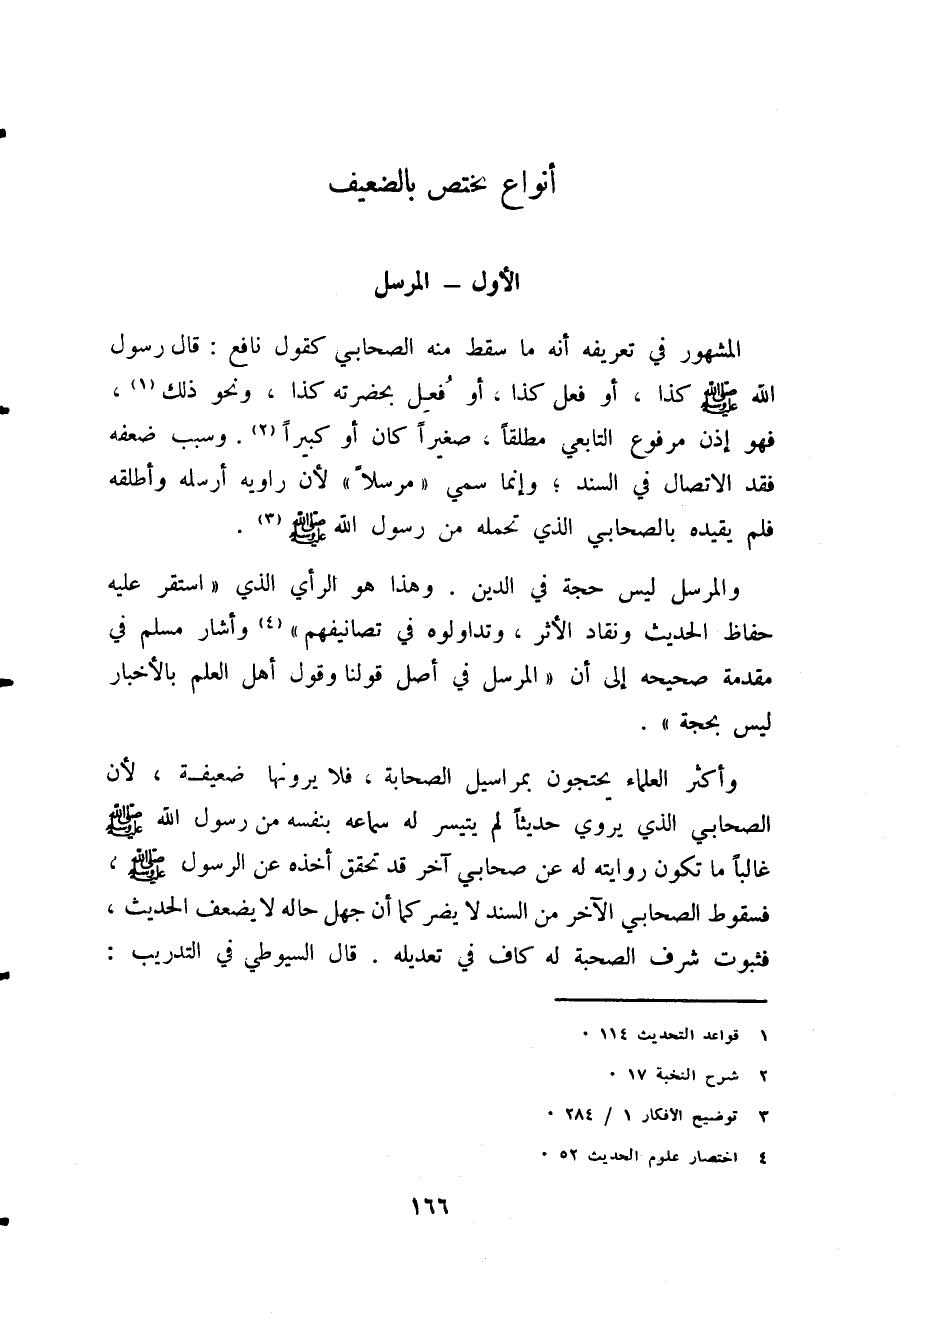 أنواع يختص بالضعيف
الأول – المرسل
المشهور في تعريفه أنه ما سقط منه الصحابي كقول نافع : قال رسول
الله ﷺ كذا ، أو فعل كذا ، أو فُعل بحضرته كذا ، ونحو ذلك (١) ،
فهو إذن مرفوع التابعي مطلقاً ، صغيراً كان أو كبيراً (٢) . وسبب ضعفه
فقد الاتصال في السند ؛ وإنما سمي « مرسلاً » لأن راويه أرسله وأطلقه
فلم يقيده بالصحابي الذي تحمله من رسول الله ﷺ (٣) .
والمرسل ليس حجة في الدين . وهذا هو الرأي الذي « استقر عليه
حفاظ الحديث ونقاد الأثر ، وتداولوه في تصانيفهم » (٤) وأشار مسلم في
مقدمة صحيحه إلى أن « المرسل في أصل قولنا وقول أهل العلم بالأخبار
ليس بحجة » .
وأكثر العلماء يحتجون بمراسيل الصحابة ، فلا يرونها ضعيفـة ، لأن
الصحابي الذي يروي حديثاً لم يتيسر له سماعه بنفسه من رسول الله ﷺ
غالباً ما تكون روايته له عن صحابي آخر قد تحقق أخذه عن الرسول ﷺ ،
فسقوط الصحابي الآخر من السند لا يضر كما أن جهل حاله لا يضعف الحديث ،
فثبوت شرف الصحبة له كاف في تعديله . قال السيوطي في التدريب :
١ قواعد التحديث ١١٤ .
٢ شرح النخبة ١٧ .
٣ توضيح الأفكار ١ / ٢٨٤ .
٤ اختصار علوم الحديث ٥٢ .
١٦٦